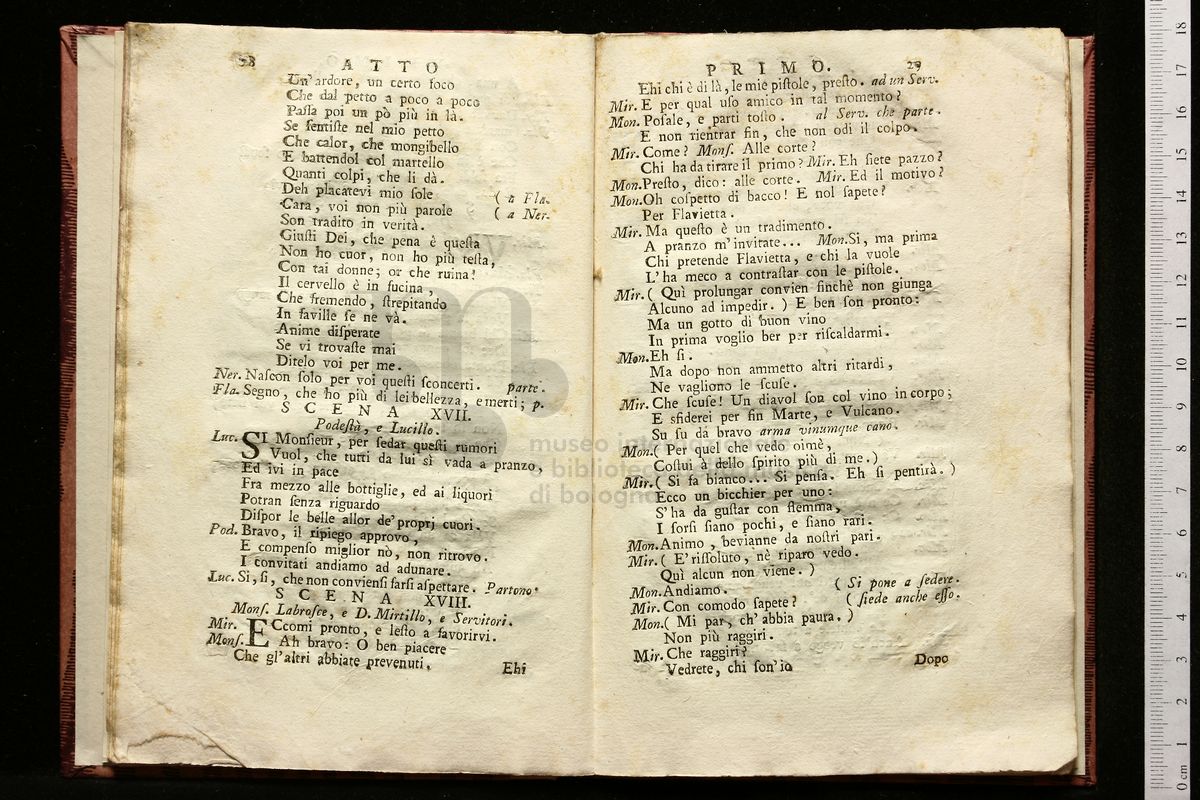 28
ATTO
Un'ardore, un certo foco
Che dal petto a poco a poco
Paſſa poi un pò più in là.
Se ſentiſte nel mio petto
Che calor, che mongibello
E battendol col martello
Quanti colpi, che li dà.
Deh placatevi mio ſole ( a Fla.
Cara, voi non più parole ( a Ner.
Son tradito in verità.
Giuſti Dei, che pena è queſta
Non ho cuor, non ho più teſta,
Con tai donne; or che ruina!
Il cervello è in fucina,
Che fremendo, ſtrepitando
In faville ſe ne và.
Anime diſperate
Se vi trovaſte mai
Ditelo voi per me.
Ner. Naſcon ſolo per voi queſti ſconcerti. parte.
Fla. Segno, che ho più di lei bellezza, e merti; p.
SCENA XVII.
Podeſtà, e Lucillo.
Luc. SI Monſieur, per ſedar queſti rumori
Vuol, che tutti da lui sì vada a pranzo,
Ed ivi in pace
Fra mezzo alle bottiglie, ed ai liquori
Potran ſenza riguardo
Diſpor le belle allor de' proprj cuori.
Pod. Bravo, il ripiego approvo,
E compenſo miglior nò, non ritrovo.
I convitati andiamo ad adunare.
Luc. Si, ſi, che non convienſi farſi aſpettare. Partono.
SCENA XVIII.
Monſ. Labroſce, e D. Mirtillo, e Servitori.
Mir. ECcomi pronto, e leſto a favorirvi.
Monſ. Ah bravo: O ben piacere
Che gl'altri abbiate prevenuti.
Ehi
PRIMO.
29
Ehi chi è di là, le mie piſtole, preſto. ad un Serv.
Mir. E per qual uſo amico in tal momento?
Mon. Poſale, e parti toſto. al Serv. che parte.
E non rientrar fin, che non odi il colpo.
Mir. Come? Monſ. Alle corte?
Chi ha da tirare il primo? Mir. Eh ſiete pazzo?
Mon. Preſto, dico: alle corte. Mir. Ed il motivo?
Mon. Oh coſpetto di bacco! E nol ſapete?
Per Flavietta.
Mir. Ma queſto è un tradimento.
A pranzo m'invitate... Mon. Si, ma prima
Chi pretende Flavietta, e chi la vuole
L'ha meco a contraſtar con le piſtole.
Mir. ( Quì prolungar convien finchè non giunga
Alcuno ad impedir. ) E ben ſon pronto:
Ma un gotto di buon vino
In prima voglio ber per riſcaldarmi.
Mon. Eh ſi.
Ma dopo non ammetto altri ritardi,
Ne vagliono le ſcuſe.
Mir. Che ſcuſe! Un diavol ſon col vino in corpo;
E sfiderei per fin Marte, e Vulcano.
Su ſu da bravo arma vinumque cano.
Mon. ( Per quel che vedo oimè,
Coſtui à dello ſpirito più di me. )
Mir. ( Si fa bianco... Si penſa. Eh ſi pentirà. )
Ecco un bicchier per uno:
S'ha da guſtar con flemma,
I ſorſi ſiano pochi, e ſiano rari.
Mon. Animo, bevianne da noſtri pari.
Mir. ( E' riſſoluto, nè riparo vedo.
Quì alcun non viene. )
Mon. Andiamo. ( Si pone a ſedere.
Mir. Con comodo ſapete? ( ſiede anche eſſo.
Mon. ( Mi par, ch'abbia paura. )
Non più raggiri.
Mir. Che raggiri?
Vedrete, chi ſon'io
Dopo
museo internazionale
e biblioteca della musica
di bologna
0 cm 1 2 3 4 5 6 7 8 9 10 11 12 13 14 15 16 17 18